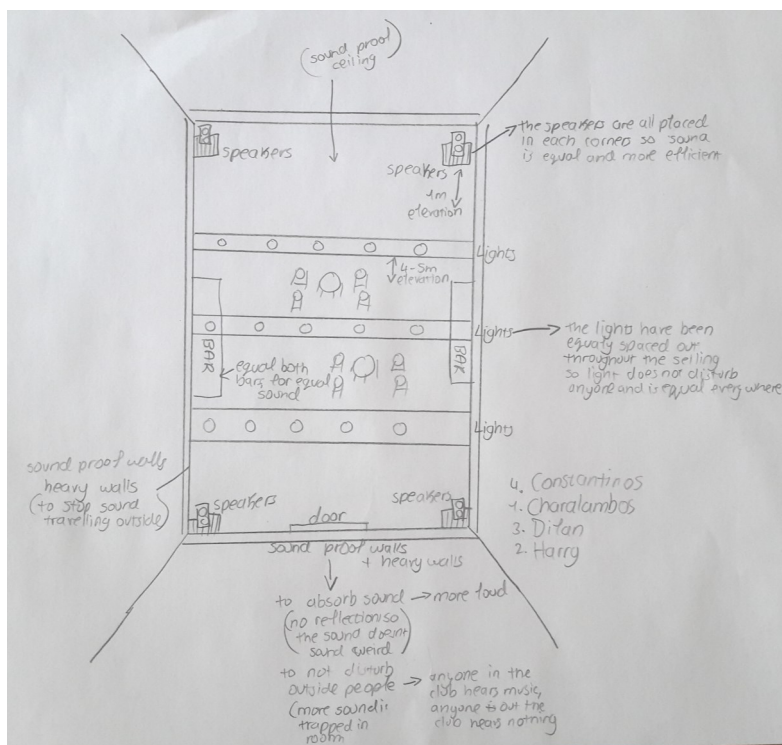 (sound proof
ceiling)
speakers
speakers
the speakers are all placed
in each corner so sound
is equal and more efficient
1m
elevation
Lights
4-5m
elevation
BAR
BAR
Lights
the lights have been
equaly spaced out
throughout the seiling
so light does not disturb
anyone and is equal everywhere
equal both
bars for equal
sound
Lights
sound proof walls
heavy walls
(to stop sound
travelling outside)
speakers
speakers
door
sound proof walls
+ heavy walls
4. Constantinos
1. Charalambos
3. Dilan
2. Harry
to absorb sound → more loud
(no reflection so
the sound doesnt
sound weird)
to not disturb
outside people
(more sound is
trapped in
room
anyone in the
club hears music,
anyone out the
club hears nothing